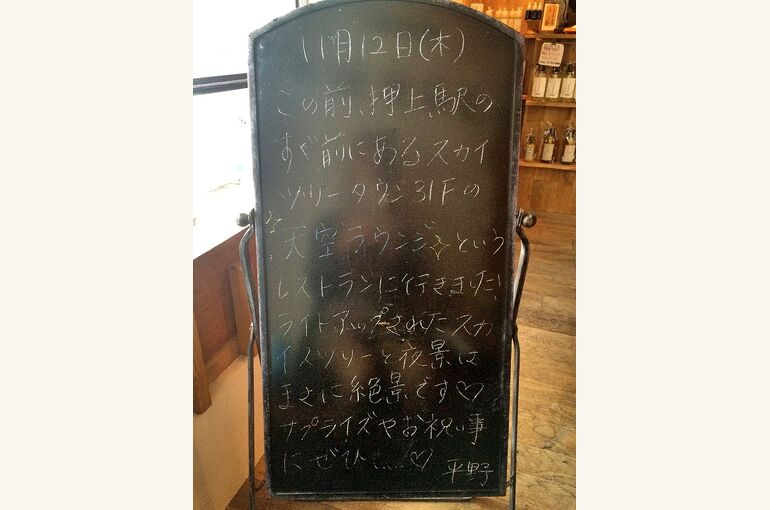 11月12日(木)
この前、押上駅の
すぐ前にあるスカイ
ツリータウン31Fの
天空ラウンジ☆という
レストランに行きました!
ライトアップされたスカ
イスツリーと夜景は
まさに絶景です♡
サプライズやお祝い事
にぜひ....♡
平野